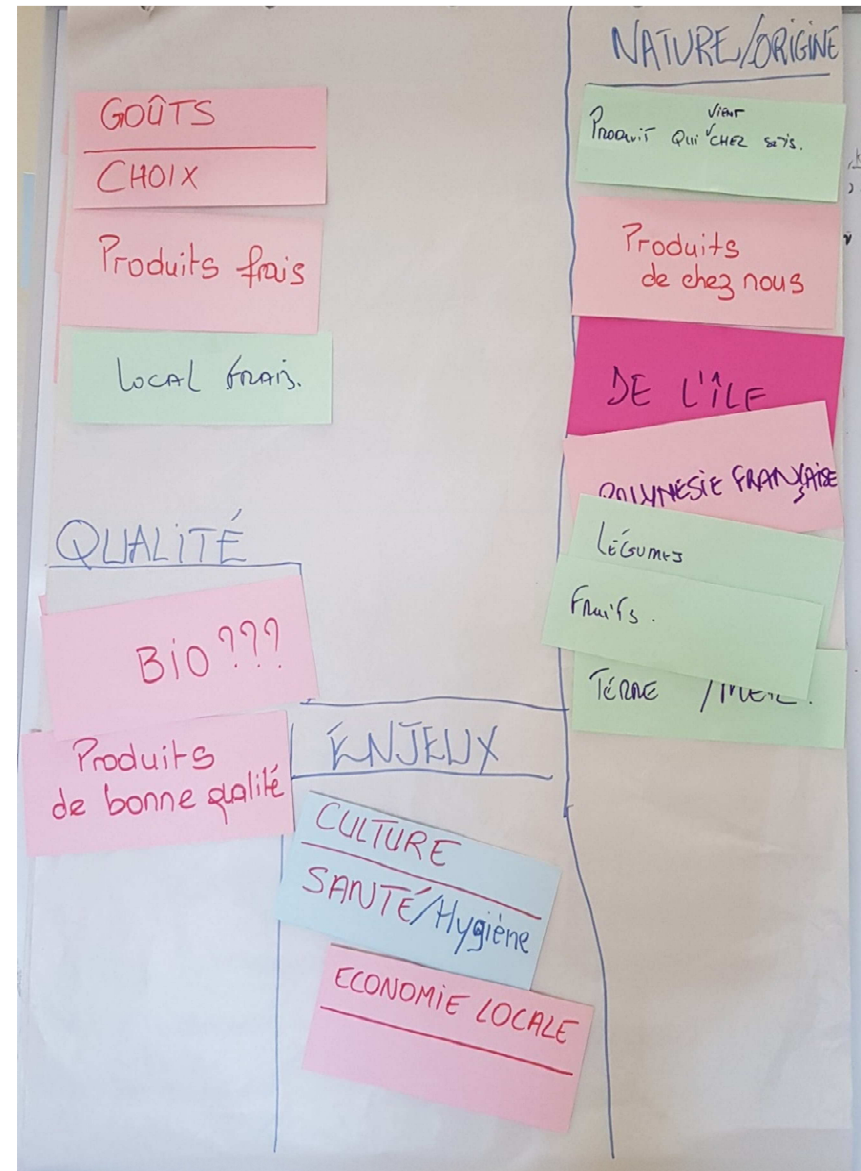 GOÛTS
CHOIX
Produits frais
LOCAL FRAIS.
QUALITÉ
BIO ???
Produits
de bonne qualité
ENJEUX
CULTURE
SANTÉ/Hygiène
ECONOMIE LOCALE
NATURE/ORIGINE
vient
Produit qui CHEZ
Produits
de chez nous
DE L'ÎLE
POLYNESIE FRANÇAISE
LÉGUMES
Fruits.
TERRE /MER.